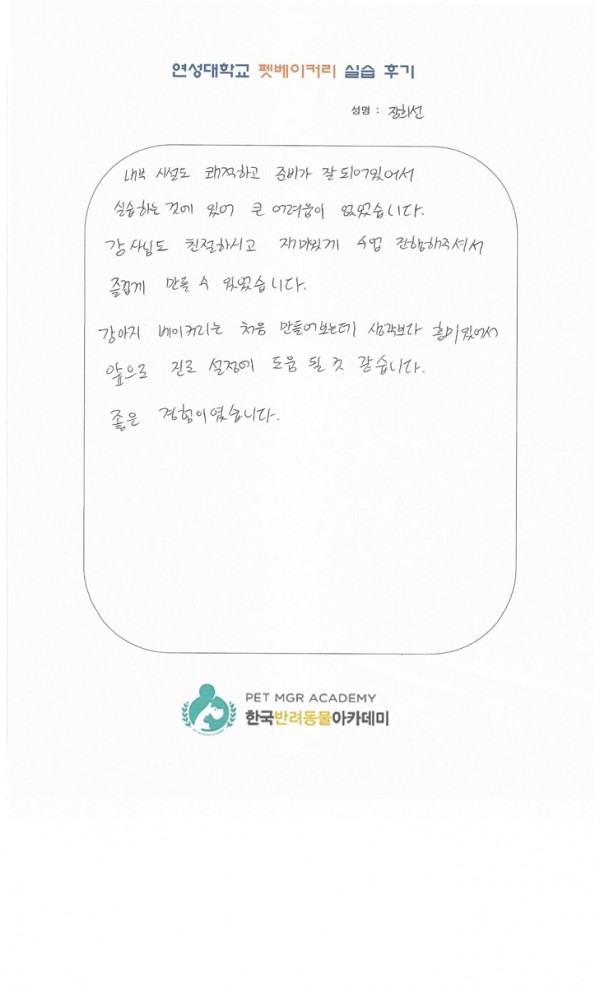 연성대학교 펫베이커리 실습 후기
성명 : 장희선
내부 시설도 쾌적하고 준비가 잘 되어있어서
실습하는 것에 있어 큰 어려움이 없었습니다.
강사님도 친절하시고 재미있게 수업 진행해주셔서
즐겁게 만들 수 있었습니다.
강아지 베이커리는 처음 만들어보는데 생각보다 흥미있어서
앞으로 진로 설정에 도움 될 것 같습니다.
좋은 경험이였습니다.
PET MGR ACADEMY
한국반려동물아카데미